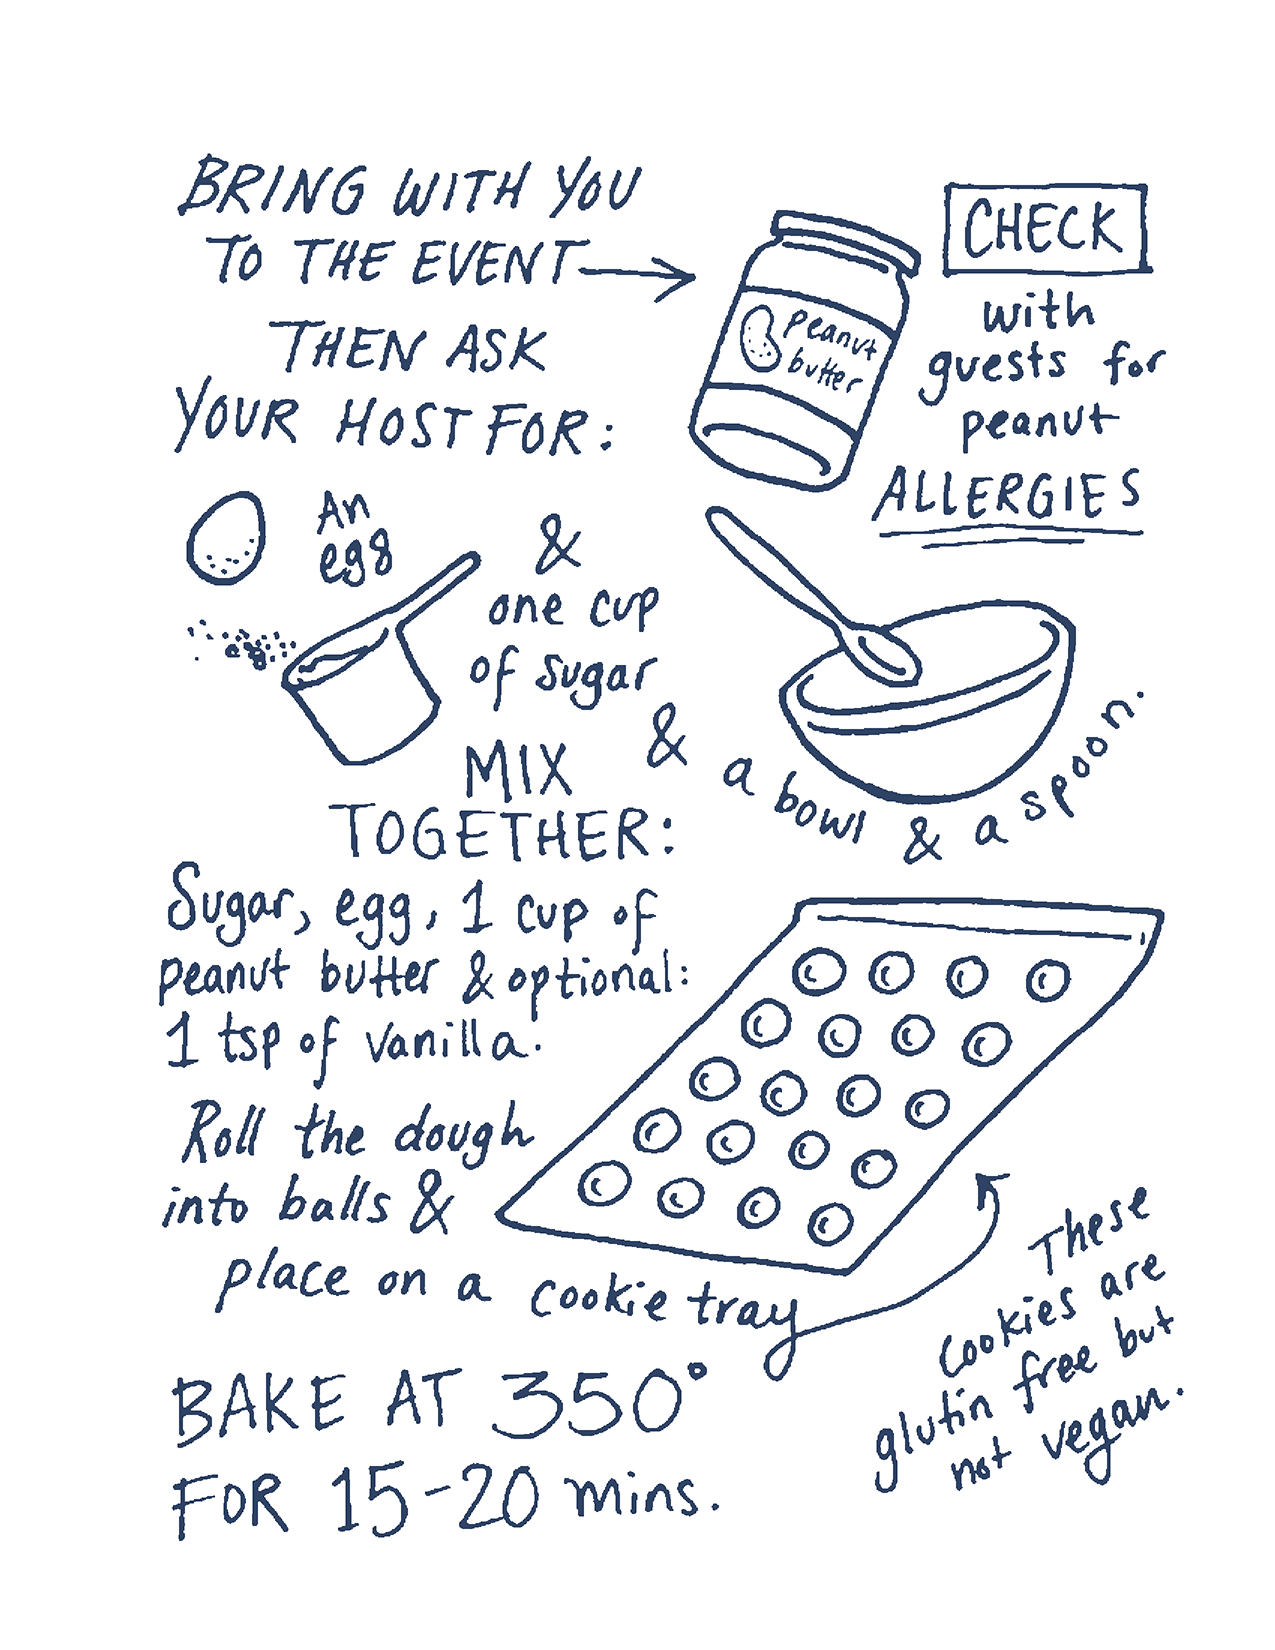 BRING WITH YOU
TO THE EVENT
THEN ASK
YOUR HOST FOR:
peanut
butter
CHECK
with
guests for
peanut
ALLERGIES
An
egg
&
one cup
of sugar
&
a bowl & a spoon.
MIX
TOGETHER:
Sugar, egg, 1 cup of
peanut butter & optional:
1 tsp of vanilla.
Roll the dough
into balls &
place on a cookie tray
These
cookies are
glutin free but
not vegan.
BAKE AT 350°
FOR 15-20 mins.